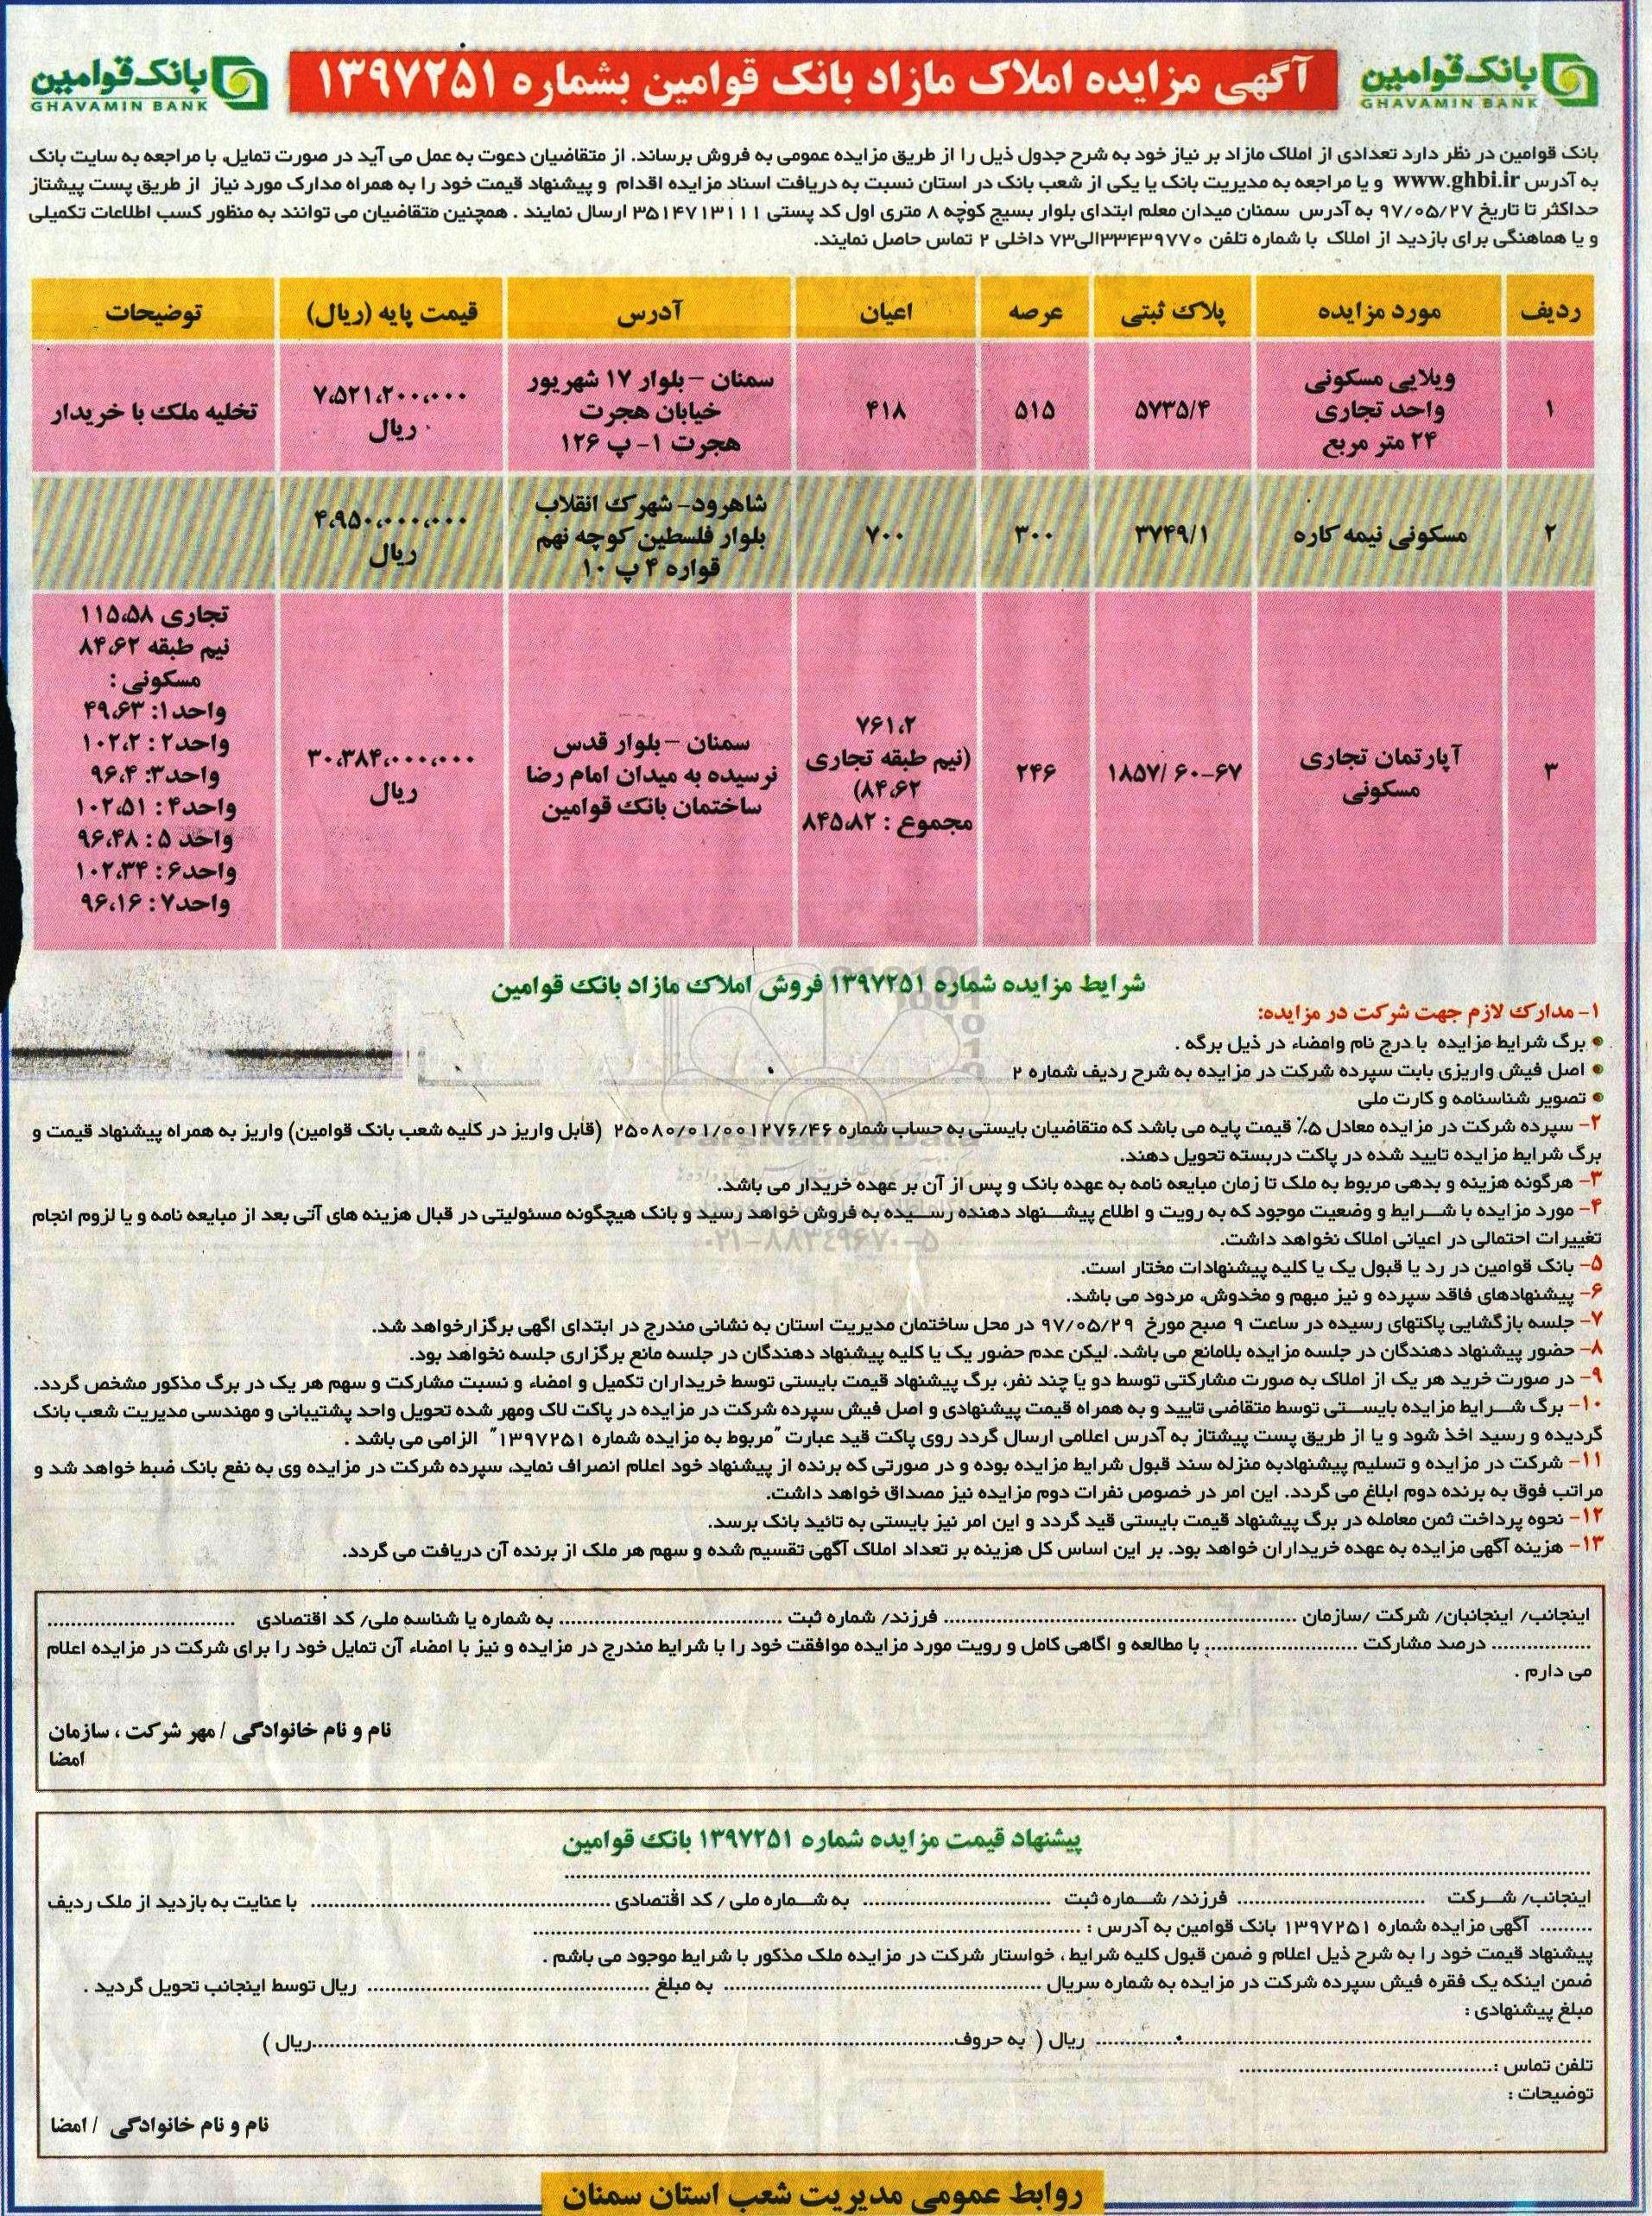 بانک قوامین
GHAVAMIN BANK
آگهی مزایده املاک مازاد بانک قوامین بشماره ۱۳۹۷۲۵۱
بانک قوامین
GHAVAMIN BANK
بانک قوامین در نظر دارد تعدادی از املاک مازاد بر نیاز خود به شرح جدول ذیل را از طریق مزایده عمومی به فروش برساند. از متقاضیان دعوت به عمل می آید در صورت تمایل، با مراجعه به سایت بانک
به آدرس www.ghbi.ir و یا مراجعه به مدیریت بانک یا یکی از شعب بانک در استان نسبت به دریافت اسناد مزایده اقدام و پیشنهاد قیمت خود را به همراه مدارک مورد نیاز از طریق پست پیشتاز
حداکثر تا تاریخ ۹۷/۰۵/۲۷ به آدرس سمنان میدان معلم ابتدای بلوار بسیج کوچه ۸ متری اول کد پستی ۳۵۱۴۷۱۳۱۱۱ ارسال نمایند . همچنین متقاضیان می توانند به منظور کسب اطلاعات تکمیلی
و یا هماهنگی برای بازدید از املاک با شماره تلفن ۳۳۴۳۹۷۷۰الی۷۳ داخلی ۲ تماس حاصل نمایند.
ردیف مورد مزایده پلاک ثبتی عرصه اعیان آدرس قیمت پایه (ریال) توضیحات
۱
ویلایی مسکونی
واحد تجاری
۲۴ متر مربع
۵۷۳۵/۴
۵۱۵
۴۱۸
سمنان – بلوار ۱۷ شهریور
خیابان هجرت
هجرت ۱- پ ۱۲۶
۷،۵۲۱،۲۰۰،۰۰۰
ریال
تخلیه ملک با خریدار
۲
مسکونی نیمه کاره
۳۷۴۹/۱
۳۰۰
۷۰۰
شاهرود- شهرک انقلاب
بلوار فلسطین کوچه نهم
قواره ۴ پ ۱۰
۴،۹۵۰،۰۰۰،۰۰۰
ریال
۳
آپارتمان تجاری
مسکونی
۱۸۵۷/ ۶۰-۶۷
۲۴۶
۷۶۱،۲
(نیم طبقه تجاری
۸۴،۶۲)
مجموع : ۸۴۵،۸۲
سمنان – بلوار قدس
نرسیده به میدان امام رضا
ساختمان بانک قوامین
۳۰،۳۸۴،۰۰۰،۰۰۰
ریال
تجاری ۱۱۵،۵۸
نیم طبقه ۸۴،۶۲
مسکونی :
واحد۱: ۴۹،۶۳
واحد۲ : ۱۰۲،۲
واحد۳: ۹۶،۴
واحد۴ : ۱۰۲،۵۱
واحد ۵ : ۹۶،۴۸
واحد۶ : ۱۰۲،۳۴
واحد۷ : ۹۶،۱۶
شرایط مزایده شماره ۱۳۹۷۲۵۱ فروش املاک مازاد بانک قوامین
۱- مدارک لازم جهت شرکت در مزایده:
● برگ شرایط مزایده با درج نام وامضاء در ذیل برگه .
● اصل فیش واریزی بابت سپرده شرکت در مزایده به شرح ردیف شماره ۲
● تصویر شناسنامه و کارت ملی
۲- سپرده شرکت در مزایده معادل ۵٪ قیمت پایه می باشد که متقاضیان بایستی به حساب شماره ۲۵۰۸۰/۰۱/۰۰۱۲۷۶/۴۶ (قابل واریز در کلیه شعب بانک قوامین) واریز به همراه پیشنهاد قیمت و
برگ شرایط مزایده تایید شده در پاکت دربسته تحویل دهند.
۳- هرگونه هزینه و بدهی مربوط به ملک تا زمان مبایعه نامه به عهده بانک و پس از آن بر عهده خریدار می باشد.
۴- مورد مزایده با شرایط و وضعیت موجود که به رویت و اطلاع پیشنهاد دهنده رسیده به فروش خواهد رسید و بانک هیچگونه مسئولیتی در قبال هزینه های آتی بعد از مبایعه نامه و یا لزوم انجام
تغییرات احتمالی در اعیانی املاک نخواهد داشت.
۰۲۱-۸۸۳۴۹۶۷۰-۵
۵- بانک قوامین در رد یا قبول یک یا کلیه پیشنهادات مختار است.
۶- پیشنهادهای فاقد سپرده و نیز مبهم و مخدوش، مردود می باشد.
۷- جلسه بازگشایی پاکتهای رسیده در ساعت ۹ صبح مورخ ۹۷/۰۵/۲۹ در محل ساختمان مدیریت استان به نشانی مندرج در ابتدای اگهی برگزارخواهد شد.
۸- حضور پیشنهاد دهندگان در جلسه مزایده بلامانع می باشد. لیکن عدم حضور یک یا کلیه پیشنهاد دهندگان در جلسه مانع برگزاری جلسه نخواهد بود.
۹- در صورت خرید هر یک از املاک به صورت مشارکتی توسط دو یا چند نفر، برگ پیشنهاد قیمت بایستی توسط خریداران تکمیل و امضاء و نسبت مشارکت و سهم هر یک در برگ مذکور مشخص گردد.
۱۰- برگ شرایط مزایده بایستی توسط متقاضی تایید و به همراه قیمت پیشنهادی و اصل فیش سپرده شرکت در مزایده در پاکت لاک ومهر شده تحویل واحد پشتیبانی و مهندسی مدیریت شعب بانک
گردیده و رسید اخذ شود و یا از طریق پست پیشتاز به آدرس اعلامی ارسال گردد روی پاکت قید عبارت "مربوط به مزایده شماره ۱۳۹۷۲۵۱" الزامی می باشد .
۱۱- شرکت در مزایده و تسلیم پیشنهادبه منزله سند قبول شرایط مزایده بوده و در صورتی که برنده از پیشنهاد خود اعلام انصراف نماید، سپرده شرکت در مزایده وی به نفع بانک ضبط خواهد شد و
مراتب فوق به برنده دوم ابلاغ می گردد. این امر در خصوص نفرات دوم مزایده نیز مصداق خواهد داشت.
۱۲- نحوه پرداخت ثمن معامله در برگ پیشنهاد قیمت بایستی قید گردد و این امر نیز بایستی به تائید بانک برسد.
۱۳- هزینه آگهی مزایده به عهده خریداران خواهد بود. بر این اساس کل هزینه بر تعداد املاک آگهی تقسیم شده و سهم هر ملک از برنده آن دریافت می گردد.
اینجانب/ اینجانبان/ شرکت /سازمان .................... فرزند/ شماره ثبت .................... به شماره یا شناسه ملی/ کد اقتصادی ....................
................ درصد مشارکت .................... با مطالعه و اگاهی کامل و رویت مورد مزایده موافقت خود را با شرایط مندرج در مزایده و نیز با امضاء آن تمایل خود را برای شرکت در مزایده اعلام
می دارم .
نام و نام خانوادگی / مهر شرکت ، سازمان
امضا
پیشنهاد قیمت مزایده شماره ۱۳۹۷۲۵۱ بانک قوامین
....................
اینجانب/ شرکت .................... فرزند/ شماره ثبت .................... به شماره ملی / کد اقتصادی .................... با عنایت به بازدید از ملک ردیف
......... آگهی مزایده شماره ۱۳۹۷۲۵۱ بانک قوامین به آدرس : ....................
پیشنهاد قیمت خود را به شرح ذیل اعلام و ضمن قبول کلیه شرایط ، خواستار شرکت در مزایده ملک مذکور با شرایط موجود می باشم .
ضمن اینکه یک فقره فیش سپرده شرکت در مزایده به شماره سریال .................... به مبلغ .................... ریال توسط اینجانب تحویل گردید .
مبلغ پیشنهادی :
.................... ریال ( به حروف....................ریال )
تلفن تماس :....................
توضیحات :
نام و نام خانوادگی / امضا
روابط عمومی مدیریت شعب استان سمنان